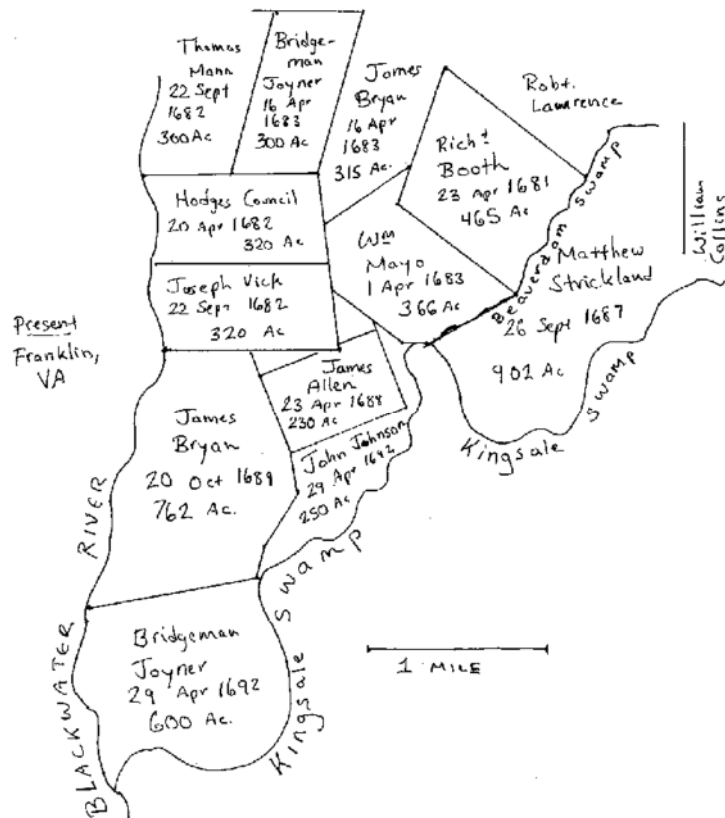 Thomas
Mann
22 Sept
1682
300 Ac
Bridge-
man
Joyner
16 Apr
1683
300 Ac
James
Bryan
16 Apr
1683
315 Ac.
Robt.
Lawrence
Richd
Booth
23 Apr 1681
465 Ac
William
Collins
Hodges Council
20 Apr 1682
320 Ac
Wm
Mayo
1 Apr 1683
366 Ac
Beaverdam Swamp
Matthew
Strickland
26 Sept 1687
902 Ac
Joseph Vick
22 Sept 1682
320 Ac
Present
Franklin,
VA
James
Allen
23 Apr 1688
230 Ac
Kingsale Swamp
James
Bryan
20 Oct 1689
762 Ac.
John Johnson
29 Apr 1692
250 Ac
BLACKWATER RIVER
Kingsale Swamp
Bridgeman
Joyner
29 Apr 1692
600 Ac.
1 MILE